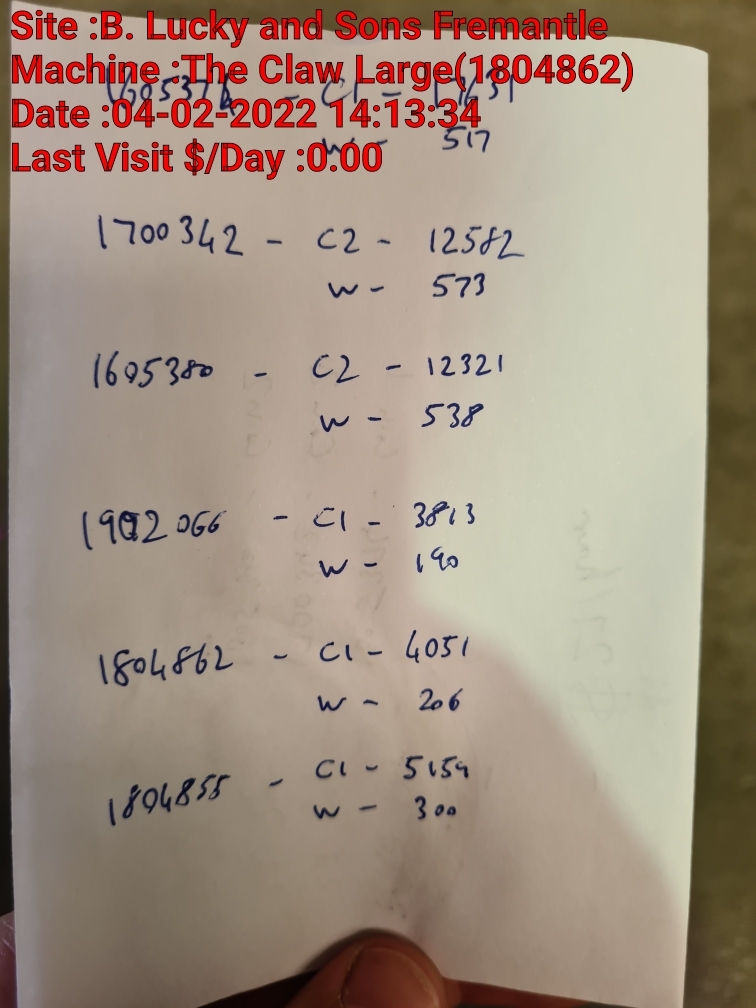 Site :B. Lucky and Sons Fremantle
Machine :The Claw Large(1804862)
Date :04-02-2022 14:13:34
Last Visit $/Day :0.00
C1 -
W - 517
1700342 - C2 - 12582
W - 573
1605380 - C2 - 12321
W - 538
1902066 - C1 - 3813
W - 190
1804862 - C1 - 4051
W - 206
1804855 - C1 - 5159
W - 300